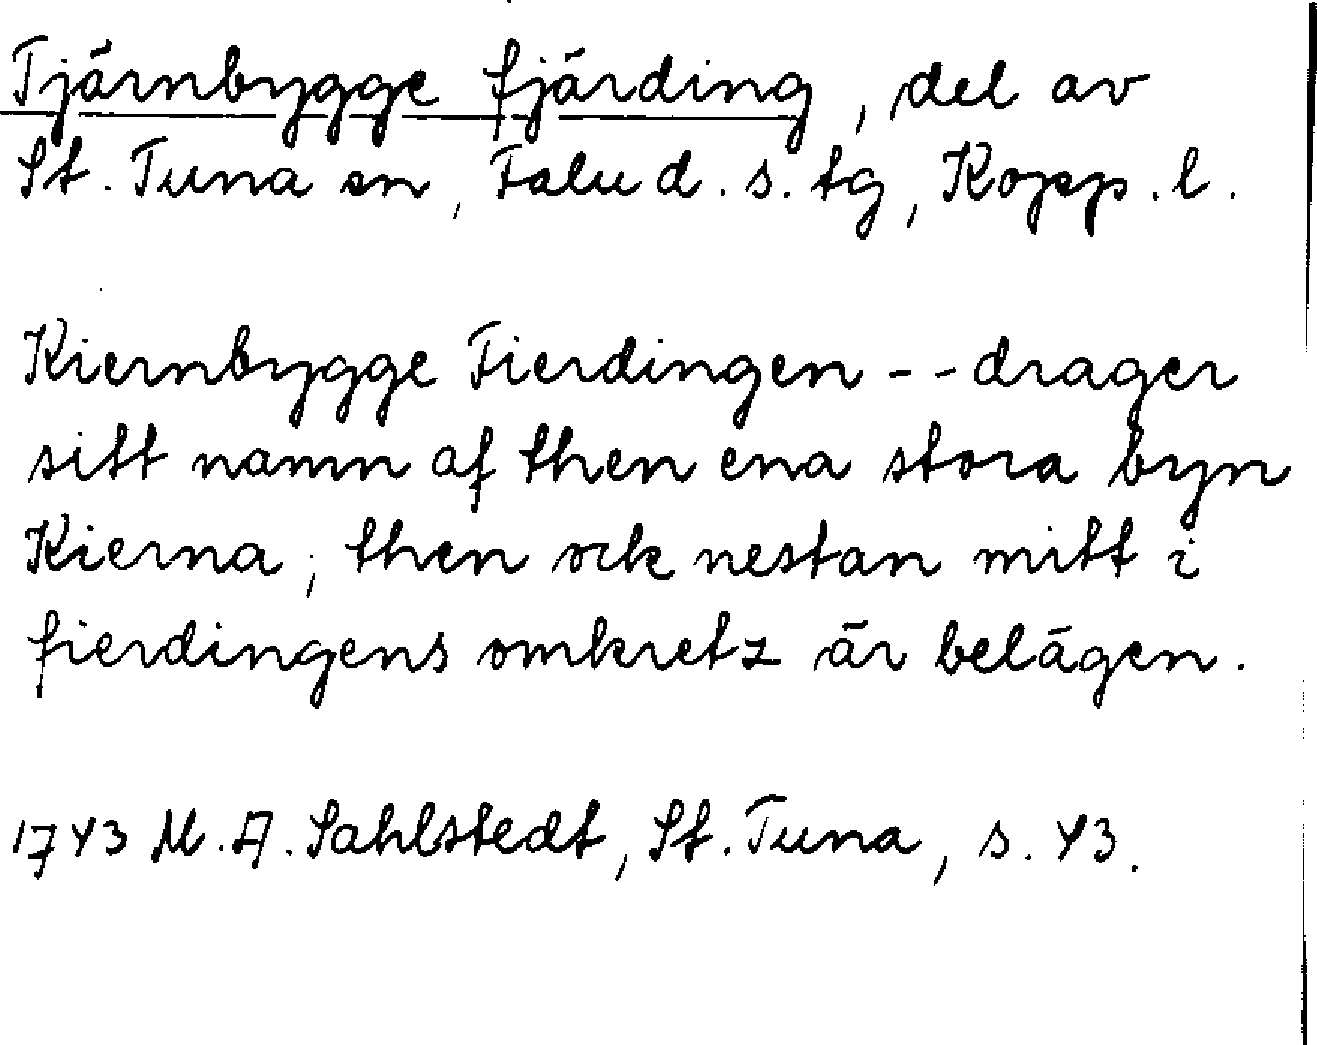 Tjärnbygge fjärding, del av
St. Tuna sn, Falu d. s. tg, Kopp. l.
Kiernbygge Fierdingen -- drager
sitt namn af then ena stora byn
Kierna, then ock nestan mitt i
fierdingens omkretz är belägen.
1743 M. A. Sahlstedt, St. Tuna, s. 43.